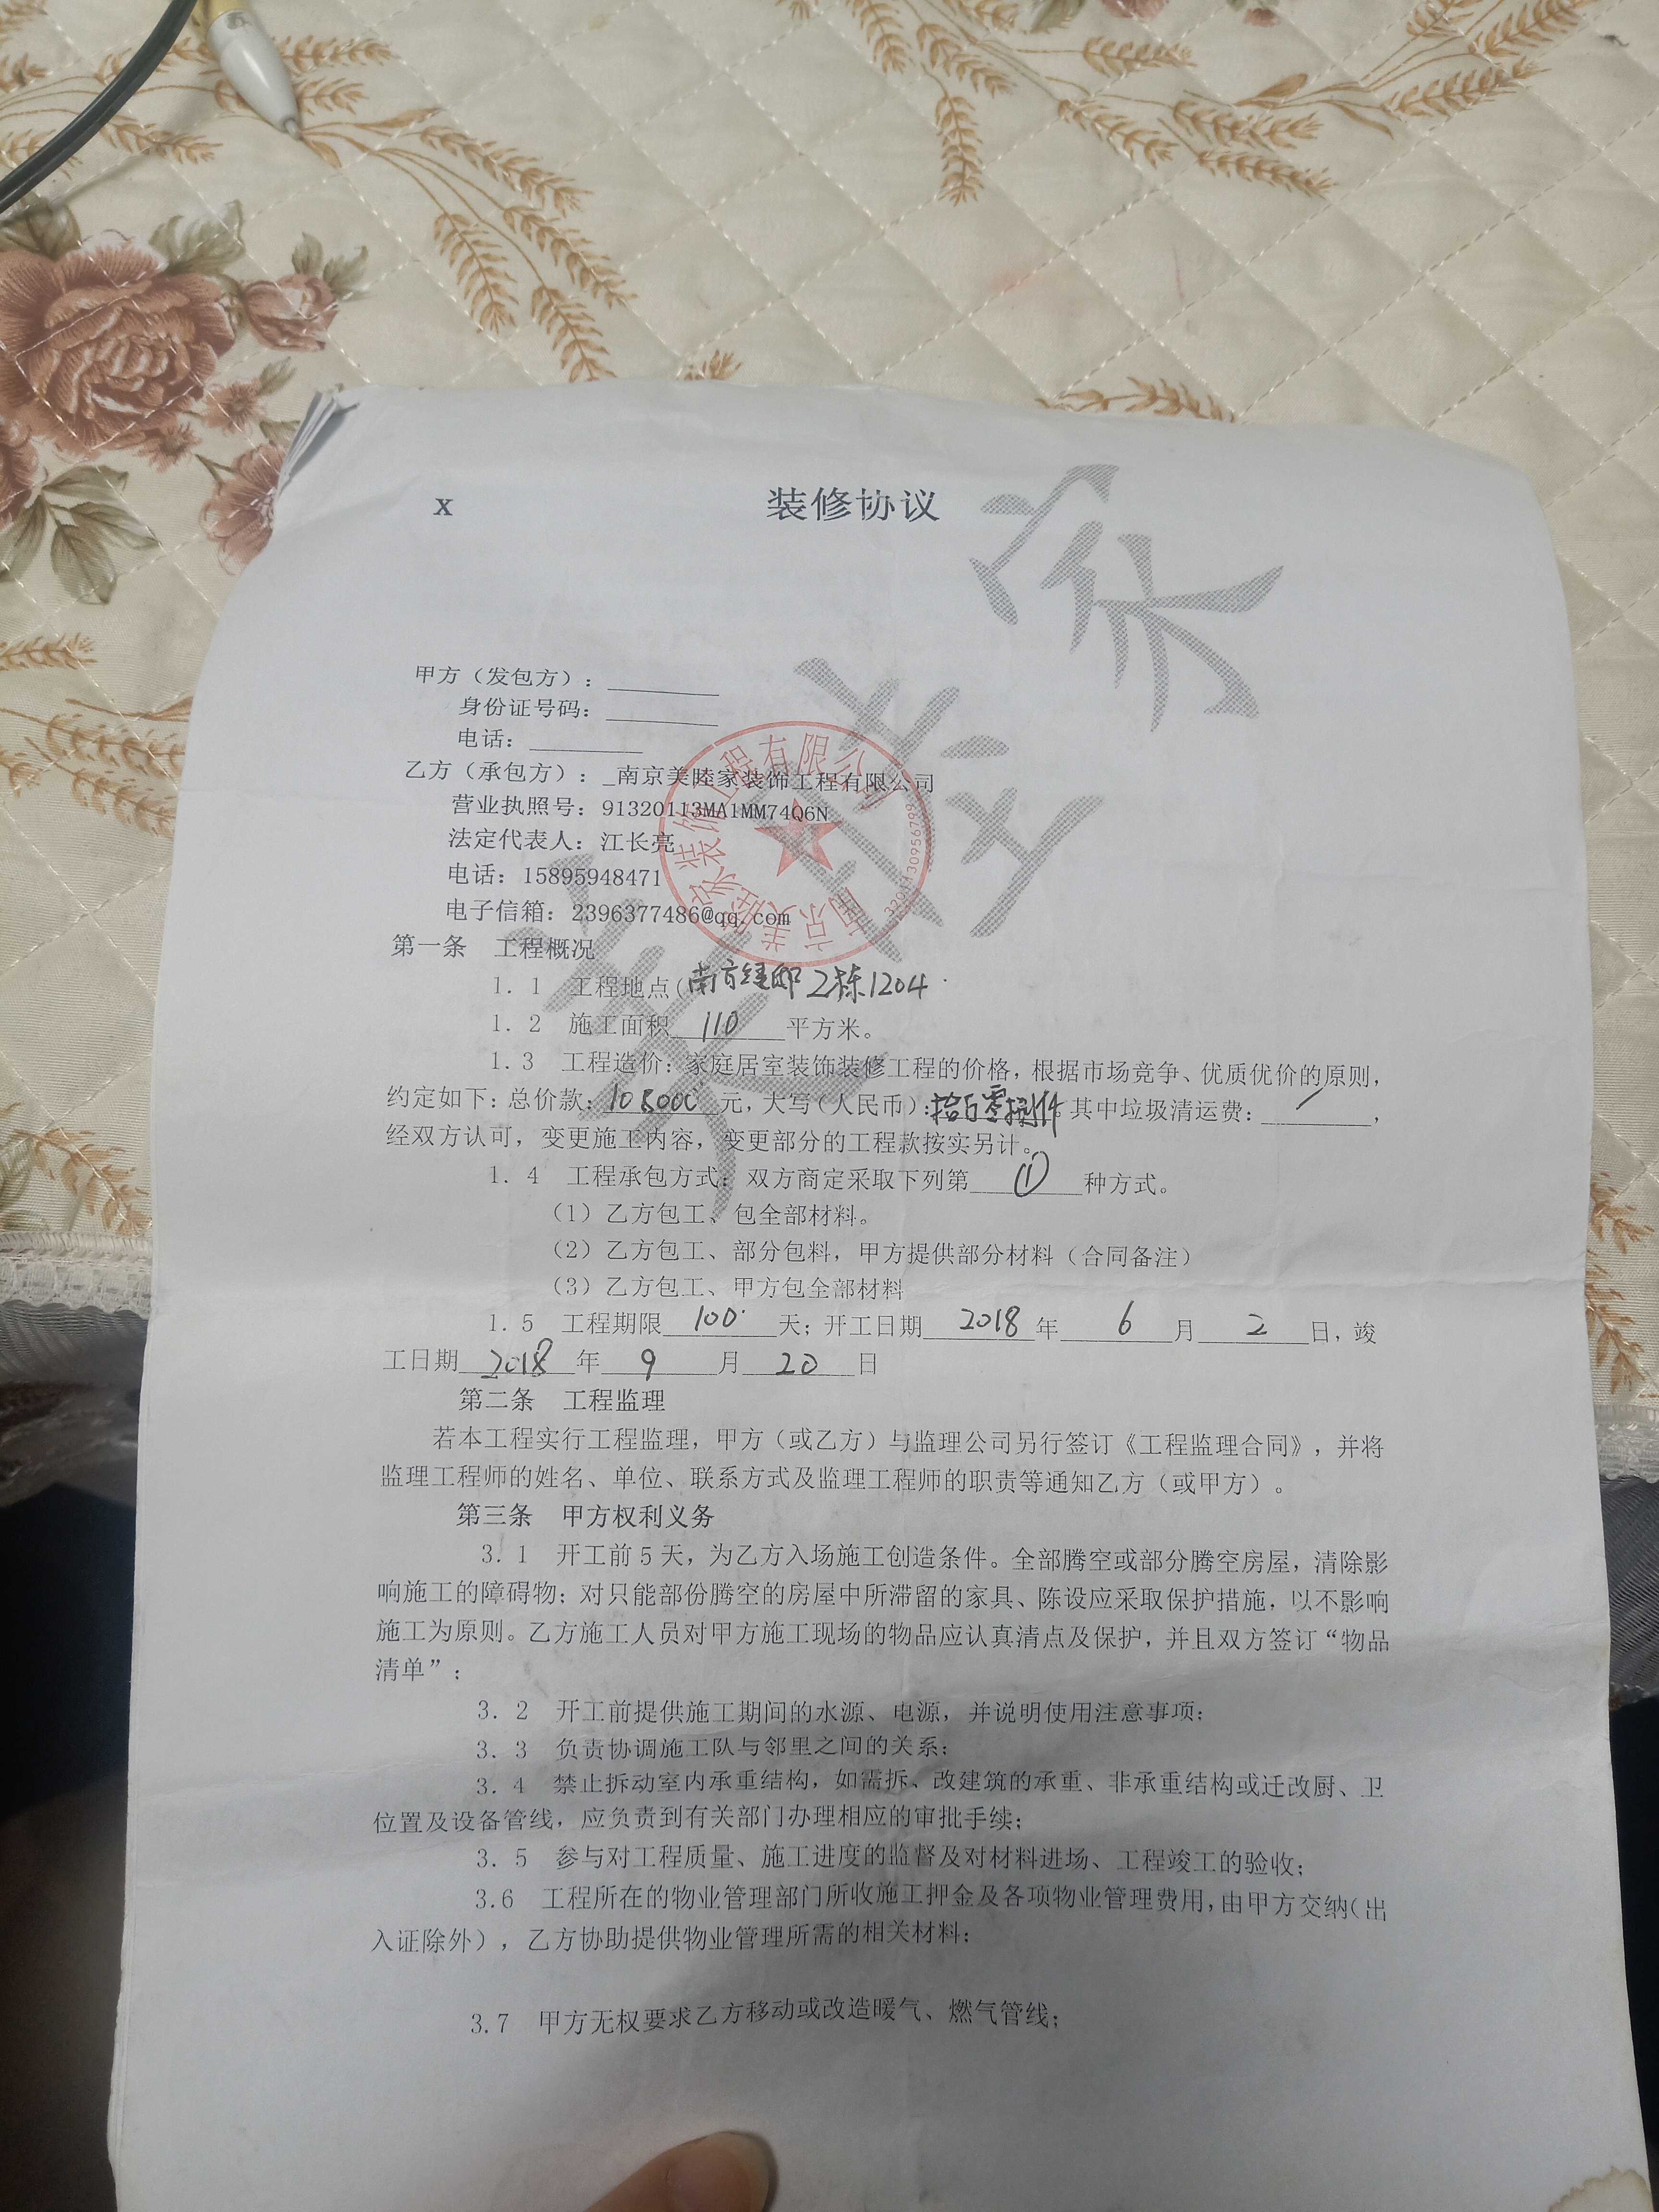 X 装修协议
甲方（发包方）：
身份证号码：
电话：
乙方（承包方）：_南京美睦家装饰工程有限公司
营业执照号：91320113MA1MM74Q6N
法定代表人：江长亮
电话：15895948471
电子信箱：2396377486@qq.com
第一条 工程概况
1.1 工程地点(南方 邸2栋1204
1.2 施工面积 110 平方米。
1.3 工程造价：家庭居室装饰装修工程的价格，根据市场竞争、优质优价的原则，
约定如下：总价款：108000 元，大写（人民币）：拾百零捌仟 其中垃圾清运费： ／ ，
经双方认可，变更施工内容，变更部分的工程款按实另计。
1.4 工程承包方式：双方商定采取下列第 ① 种方式。
（1）乙方包工、包全部材料。
（2）乙方包工、部分包料，甲方提供部分材料（合同备注）
（3）乙方包工、甲方包全部材料
1.5 工程期限 100 天；开工日期 2018 年 6 月 2 日，竣
工日期 2018 年 9 月 20 日
第二条 工程监理
若本工程实行工程监理，甲方（或乙方）与监理公司另行签订《工程监理合同》，并将
监理工程师的姓名、单位、联系方式及监理工程师的职责等通知乙方（或甲方）。
第三条 甲方权利义务
3.1 开工前5天，为乙方入场施工创造条件。全部腾空或部分腾空房屋，清除影
响施工的障碍物；对只能部份腾空的房屋中所滞留的家具、陈设应采取保护措施，以不影响
施工为原则。乙方施工人员对甲方施工现场的物品应认真清点及保护，并且双方签订“物品
清单”；
3.2 开工前提供施工期间的水源、电源，并说明使用注意事项；
3.3 负责协调施工队与邻里之间的关系；
3.4 禁止拆动室内承重结构，如需拆、改建筑的承重、非承重结构或迁改厨、卫
位置及设备管线，应负责到有关部门办理相应的审批手续；
3.5 参与对工程质量、施工进度的监督及对材料进场、工程竣工的验收；
3.6 工程所在的物业管理部门所收施工押金及各项物业管理费用，由甲方交纳（出
入证除外），乙方协助提供物业管理所需的相关材料；
3.7 甲方无权要求乙方移动或改造暖气、燃气管线；
美睦家
南京美睦家装饰工程有限公司